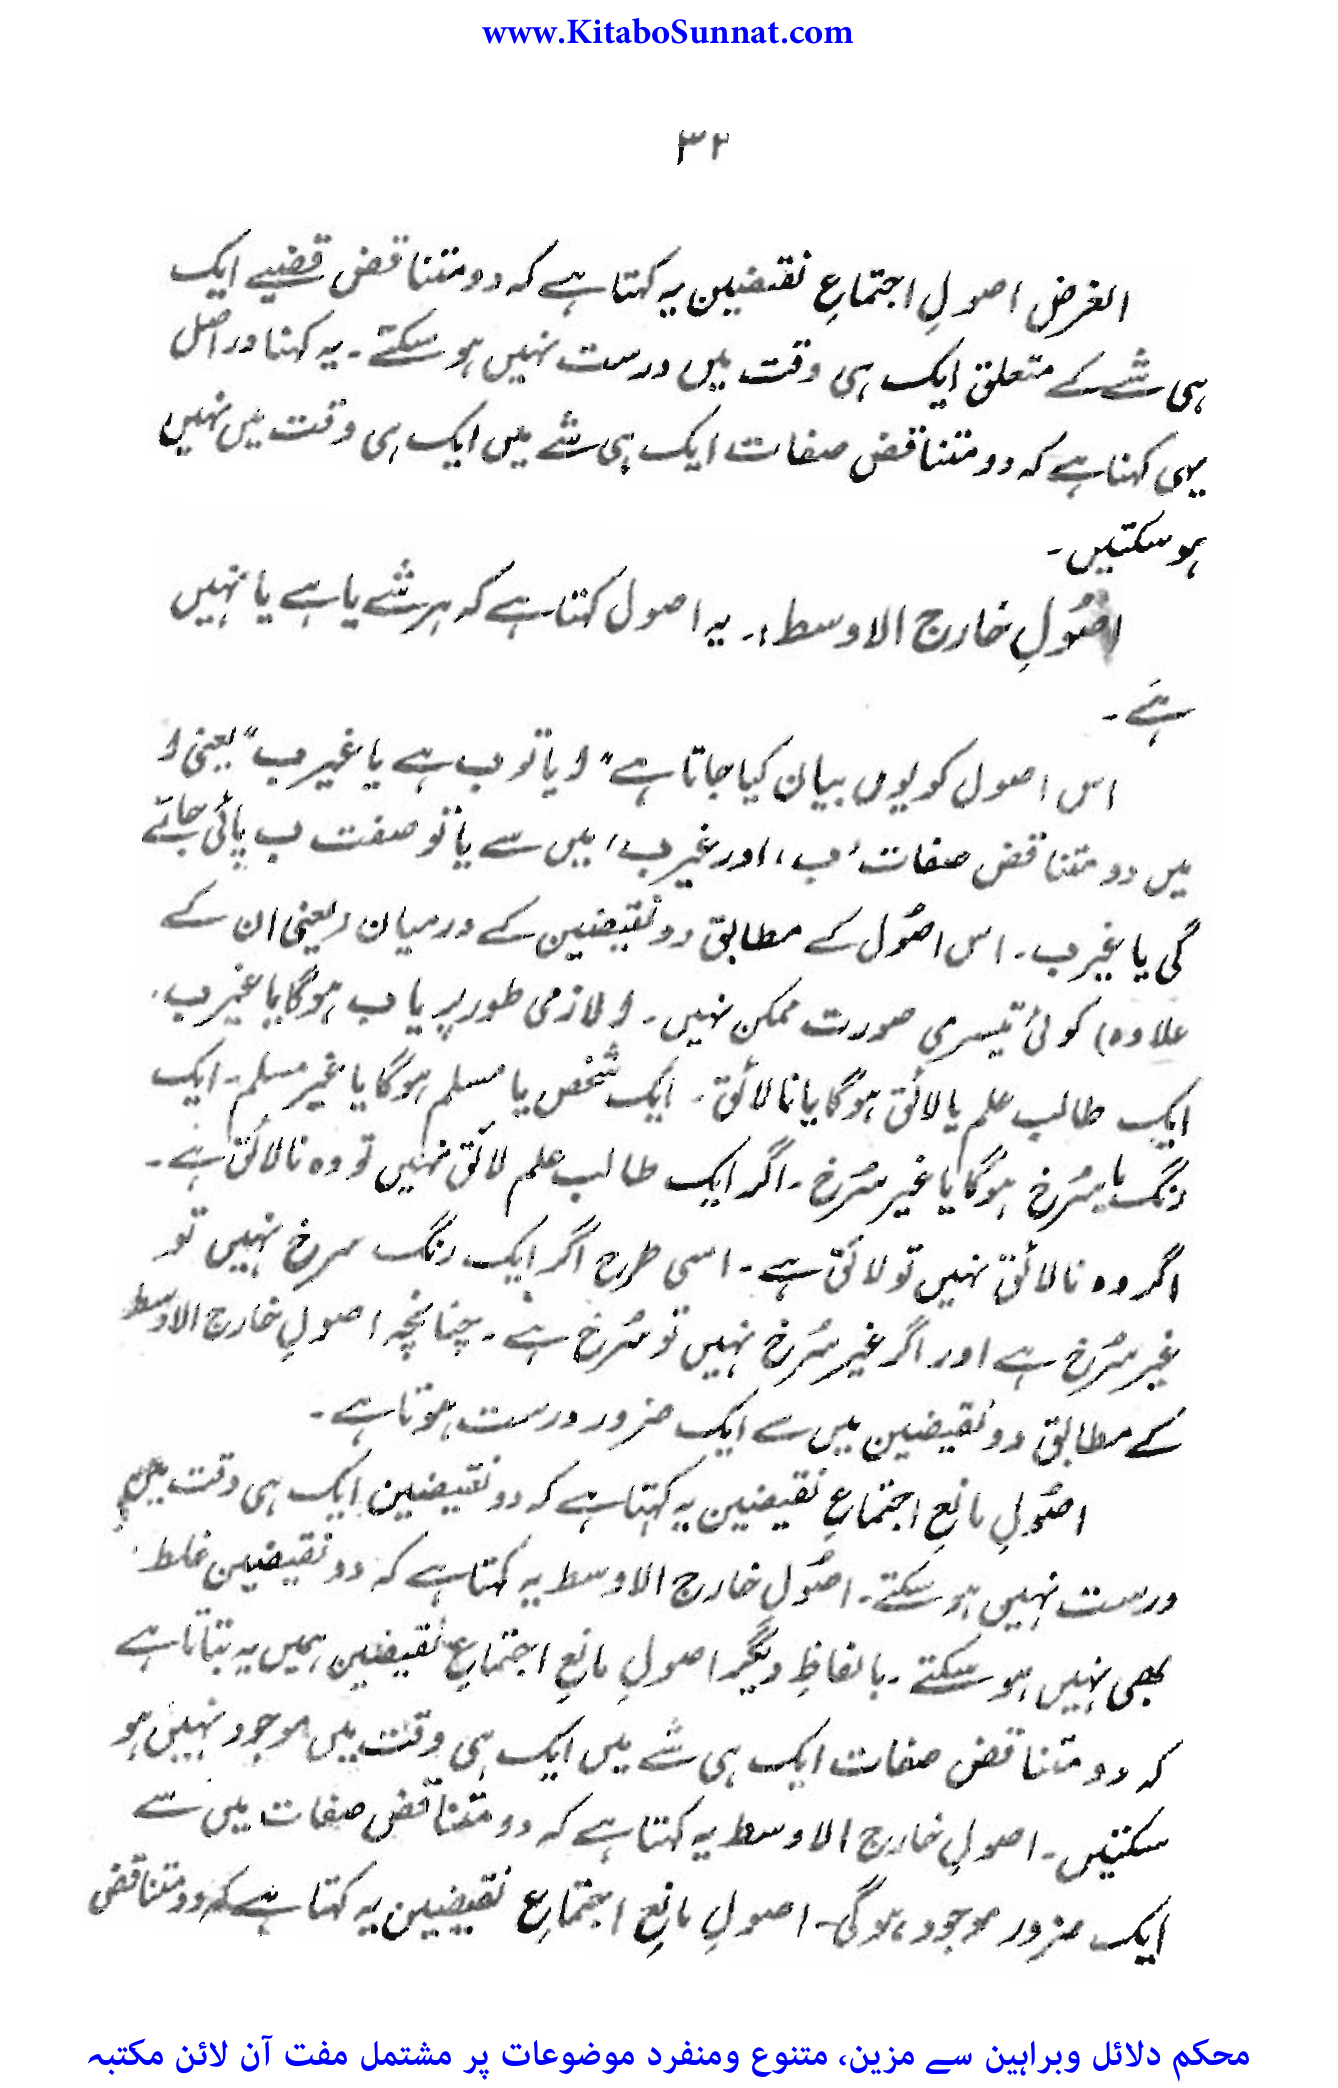 www.KitaboSunnat.com
۳۲
الغرض اصولِ اجتماعِ نقیضین یہ کہتا ہے کہ دو متناقض قضیے ایک
ہی شے کے متعلق ایک ہی وقت میں درست نہیں ہو سکتے ۔ یہ کہنا دراصل
یہی کہنا ہے کہ دو متناقض صفات ایک ہی شے میں ایک ہی وقت میں نہیں
ہو سکتیں ۔
اصُولِ خارج الاوسط :۔ یہ اصول کہتا ہے کہ ہر شے یا ہے یا نہیں
ہے ۔
اس اصول کو یوں بیان کیا جاتا ہے " ا یا تو ب ہے یا غیر ب " یعنی ا
میں دو متناقض صفات ' ب ' اور غیر ب ' میں سے یا تو صفت ب پائی جائے
گی یا غیر ب ۔ اس اصُول کے مطابق دو نقیضین کے درمیان (یعنی ان کے
علاوہ) کوئی تیسری صورت ممکن نہیں ۔ ا لازمی طور پر یا ب ہوگا یا غیر ب ۔
ایک طالب علم یا لائق ہوگا یا نالائق ۔ ایک شخص یا مسلم ہوگا یا غیر مسلم ۔ ایک
رنگ یا سُرخ ہوگا یا غیر سُرخ ۔ اگر ایک طالب علم لائق نہیں تو وہ نالائق ہے ۔
اگر وہ نالائق نہیں تو لائق ہے ۔ اسی طرح اگر ایک رنگ سرخ نہیں تو
غیر سُرخ ہے اور اگر غیر سُرخ نہیں تو سُرخ ہے ۔ چنانچہ اصولِ خارج الاوسط
کے مطابق دو نقیضین میں سے ایک ضرور درست ہوتا ہے ۔
اصُولِ مانعِ اجتماعِ نقیضین یہ کہتا ہے کہ دو نقیضین ایک ہی وقت میں
درست نہیں ہو سکتے ۔ اصُولِ خارج الاوسط یہ کہتا ہے کہ دو نقیضین غلط
بھی نہیں ہو سکتے ۔ بالفاظِ دیگر اصولِ مانعِ اجتماعِ نقیضین ہمیں یہ بتاتا ہے
کہ دو متناقض صفات ایک ہی شے میں ایک ہی وقت میں موجود نہیں ہو
سکتیں ۔ اصولِ خارج الاوسط یہ کہتا ہے کہ دو متناقض صفات میں سے
ایک ضرور موجود ہوگی ۔ اصولِ مانعِ اجتماعِ نقیضین یہ کہتا ہے کہ دو متناقض
محکم دلائل وبراہین سے مزین، متنوع ومنفرد موضوعات پر مشتمل مفت آن لائن مکتبہ